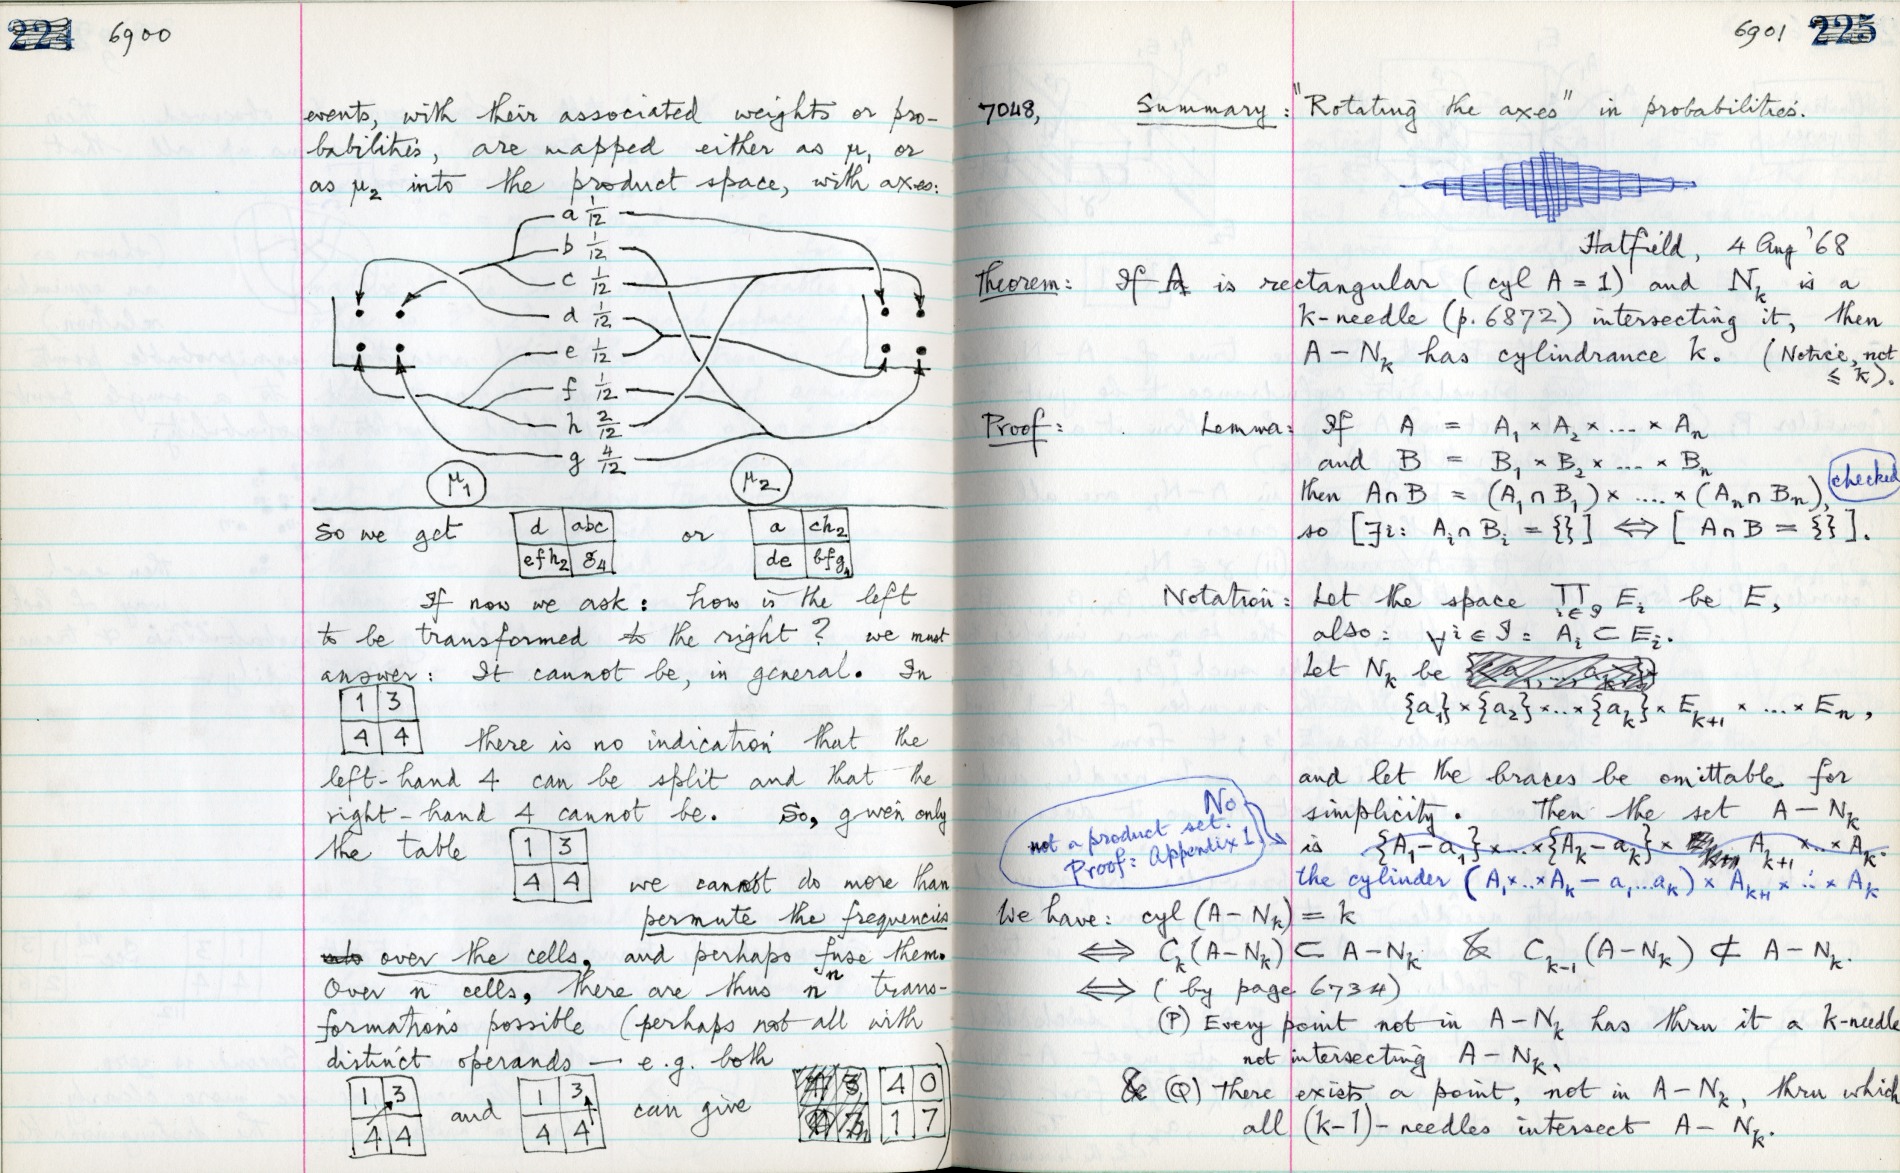 224 6900
events, with their associated weights or pro-
babilities, are mapped either as μ₁ or
as μ₂ into the product space, with axes:
a 1/12
b 1/12
c 1/12
d 1/12
e 1/12
f 1/12
h 2/12
g 4/12
μ₁ μ₂
So we get d abc or a ch₂
efh₂ g₄ de bfg₄
If now we ask: how is the left
to be transformed to the right? we must
answer: It cannot be, in general. In
1 3
4 4 there is no indication that the
left-hand 4 can be split and that the
right-hand 4 cannot be. So, given only
the table 1 3
4 4 we cannot do more than
permute the frequencies
over the cells, and perhaps fuse them.
Over n cells, there are thus nⁿ trans-
formations possible (perhaps not all with
distinct operands — e.g. both
1 3 and 1 3 can give 4 0
4 4 4 4 1 7)
6901 225
7048, Summary: "Rotating the axes" in probabilities.
Hatfield, 4 Aug '68
Theorem: If A is rectangular (cyl A = 1) and Nₖ is a
k-needle (p.6872) intersecting it, then
A − Nₖ has cylindrance k. (Notice, not
≤ k).
Proof: Lemma: If A = A₁ × A₂ × ... × Aₙ
and B = B₁ × B₂ × ... × Bₙ
then A∩B = (A₁∩B₁) × .... × (Aₙ∩Bₙ), checked
so [∃i: Aᵢ∩Bᵢ = {}] ⟺ [A∩B = {}].
Notation: Let the space ∏ᵢ∈𝒥 Eᵢ be E,
also: ∀i∈𝒥: Aᵢ ⊂ Eᵢ.
Let Nₖ be
{a₁}×{a₂}×..×{aₖ}×Eₖ₊₁ × ... × Eₙ,
and let the braces be omittable for
simplicity. Then the set A − Nₖ
is {A₁−a₁}×...×{Aₖ−aₖ}× Aₖ₊₁ ×..× Aₖ.
No
not a product set.
Proof: Appendix 1
the cylinder (A₁×..×Aₖ − a₁...aₖ) × Aₖ₊₁ × .. × Aₖ
We have: cyl (A−Nₖ) = k
⟺ Cₖ(A−Nₖ) ⊂ A−Nₖ & Cₖ₋₁(A−Nₖ) ⊄ A−Nₖ.
⟺ (by page 6734)
(P) Every point not in A−Nₖ has thru it a k-needle
not intersecting A−Nₖ,
& (Q) There exists a point, not in A−Nₖ, thru which
all (k-1)-needles intersect A−Nₖ.